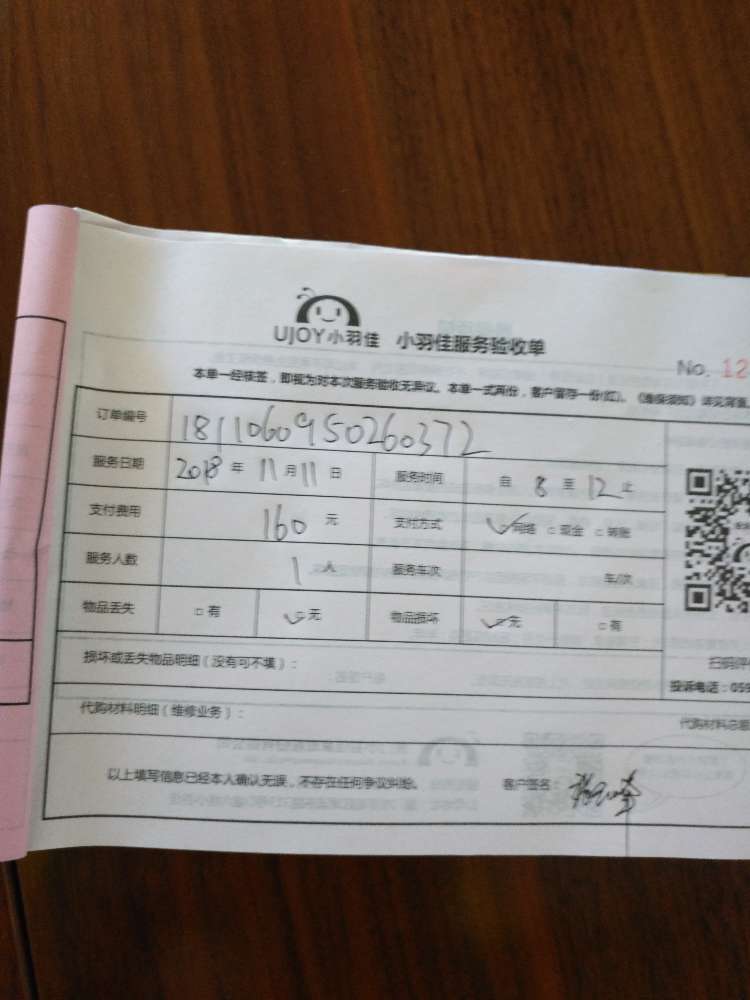 UJOY小羽佳 小羽佳服务验收单
No. 12
本单一经核签，即视为对本次服务验收无异议。本单一式两份，客户留存一份(红)。《维保须知》详见背面。
订单编号 1811060950260372
服务日期 2018 年 11 月 11 日 服务时间 自 8 至 12 止
支付费用 160 元 支付方式 ☑网络 □现金 □转账
服务人数 1 人 服务车次 车/次
物品丢失 □有 ☑无 物品损坏 ☑无 □有
扫码评
损坏或丢失物品明细（没有可不填）：
投诉电话：059
代购材料明细（维修业务）：
代购材料总
以上填写信息已经本人确认无误，不存在任何争议纠纷。 客户签名：